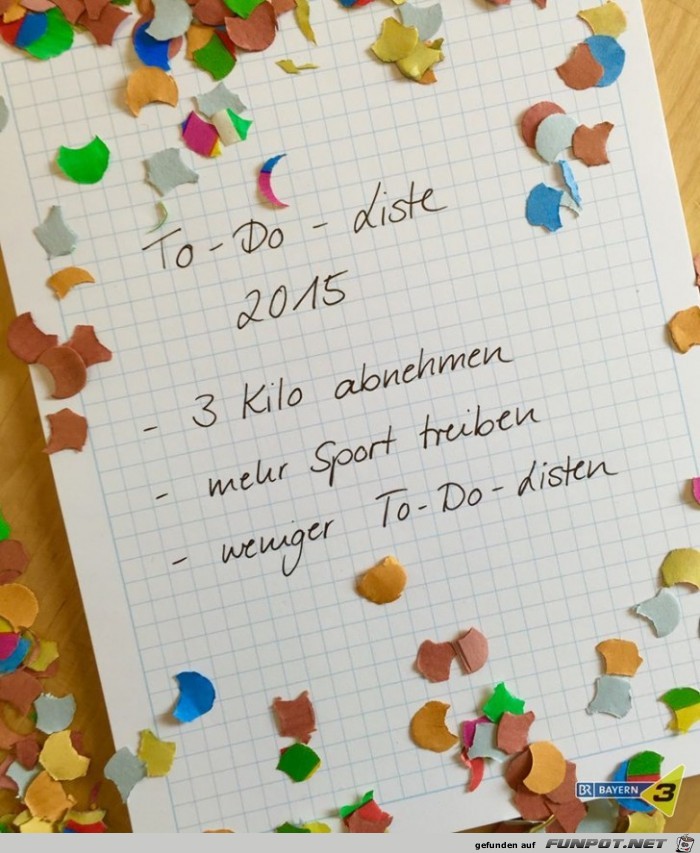 To-Do-Liste
2015
- 3 Kilo abnehmen
- mehr Sport treiben
- weniger To-Do-Listen
BR BAYERN 3
gefunden auf FUNPOT.NET